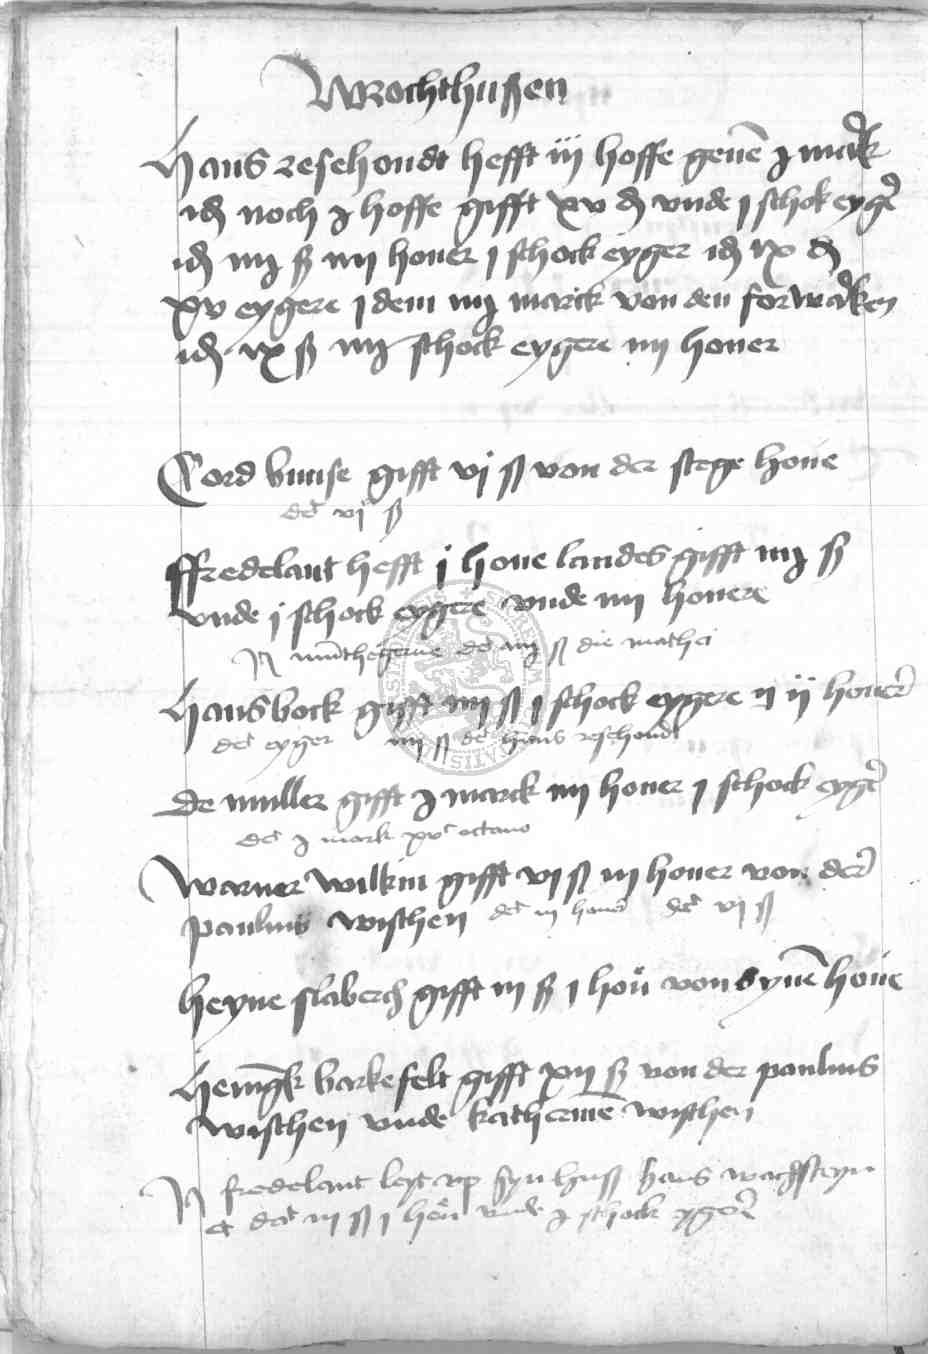 Wrochthußen
Hans resehondt hefft iii hoffe geuē j marck
id noch j hoffe gifft xv d vnde j schok eyger
id iiij ß iiij honer j schock eyger id ix d
xv eygere jdem iiij marck von den forwarken
id ix ß iiij schock eygere iiij honer
Cord bunse gifft vj ß von der stege houe
det vj ß
ffredelant hefft j houe landes gifft iiij ß
vnde j schock eygere vnde iiij honere
det iiij ß die mathei
Hans bock gifft iiij ß j schock eygere ij honer
det eyger iiij ß det hans resehondt
De muller gifft j marck iiij honer j schock eyger
det j mark octauo
Warner Wilkin gifft vj ß iij honer von der
paulins wischen det iij honer det vj ß
heyne slaberch gifft iij ß j hon von synē houe
Henigk barkefelt gifft xij ß von der paulins
wischen vnde katherinē wischen
fredelant leyt vp syn huß hans wachsteyn
det iij ß j hon vnde j schock ygere